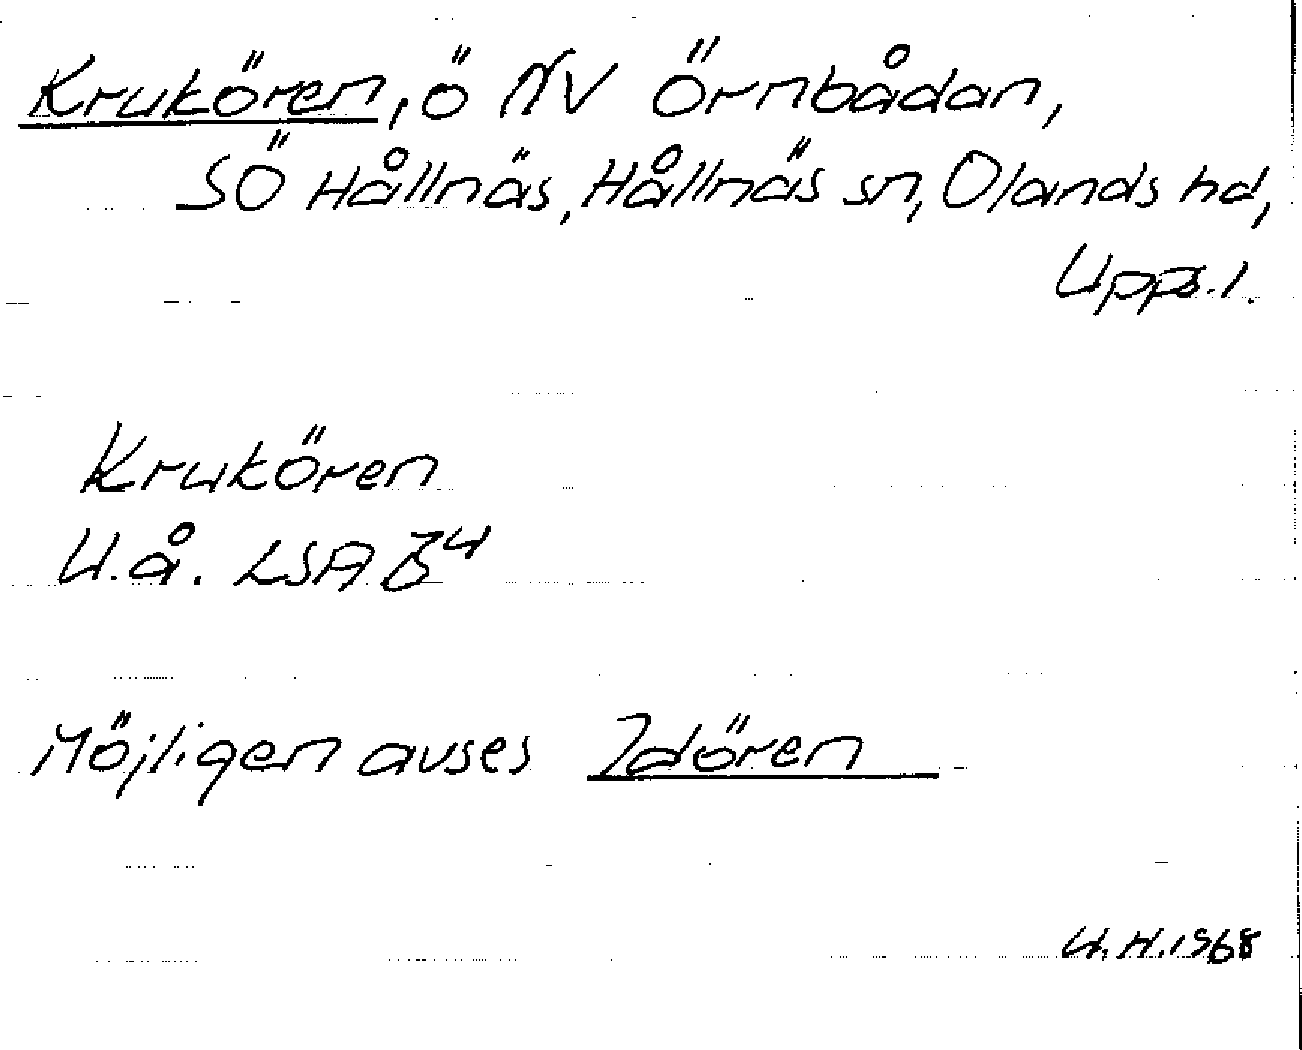 Krukören, ö NV Örnbådan,
SÖ Hållnäs, Hållnäs sn, Olands hd,
Upps. l.
Krukören
U.å. LSA B⁴
Möjligen avses Idören
U.H. 1968